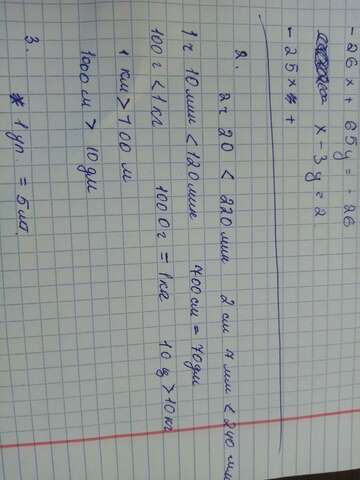 -26x + 65y = -26
x - 3y = 2
-25x +
2.
2ч 20 < 220мин 2см 7мм < 240мм
1ч 10мин < 120мин 700см = 70дм
100г < 1кг 1000г = 1кг 10ц > 10кг
1км > 100м
1000см > 10дм
3.
1уп = 5м.